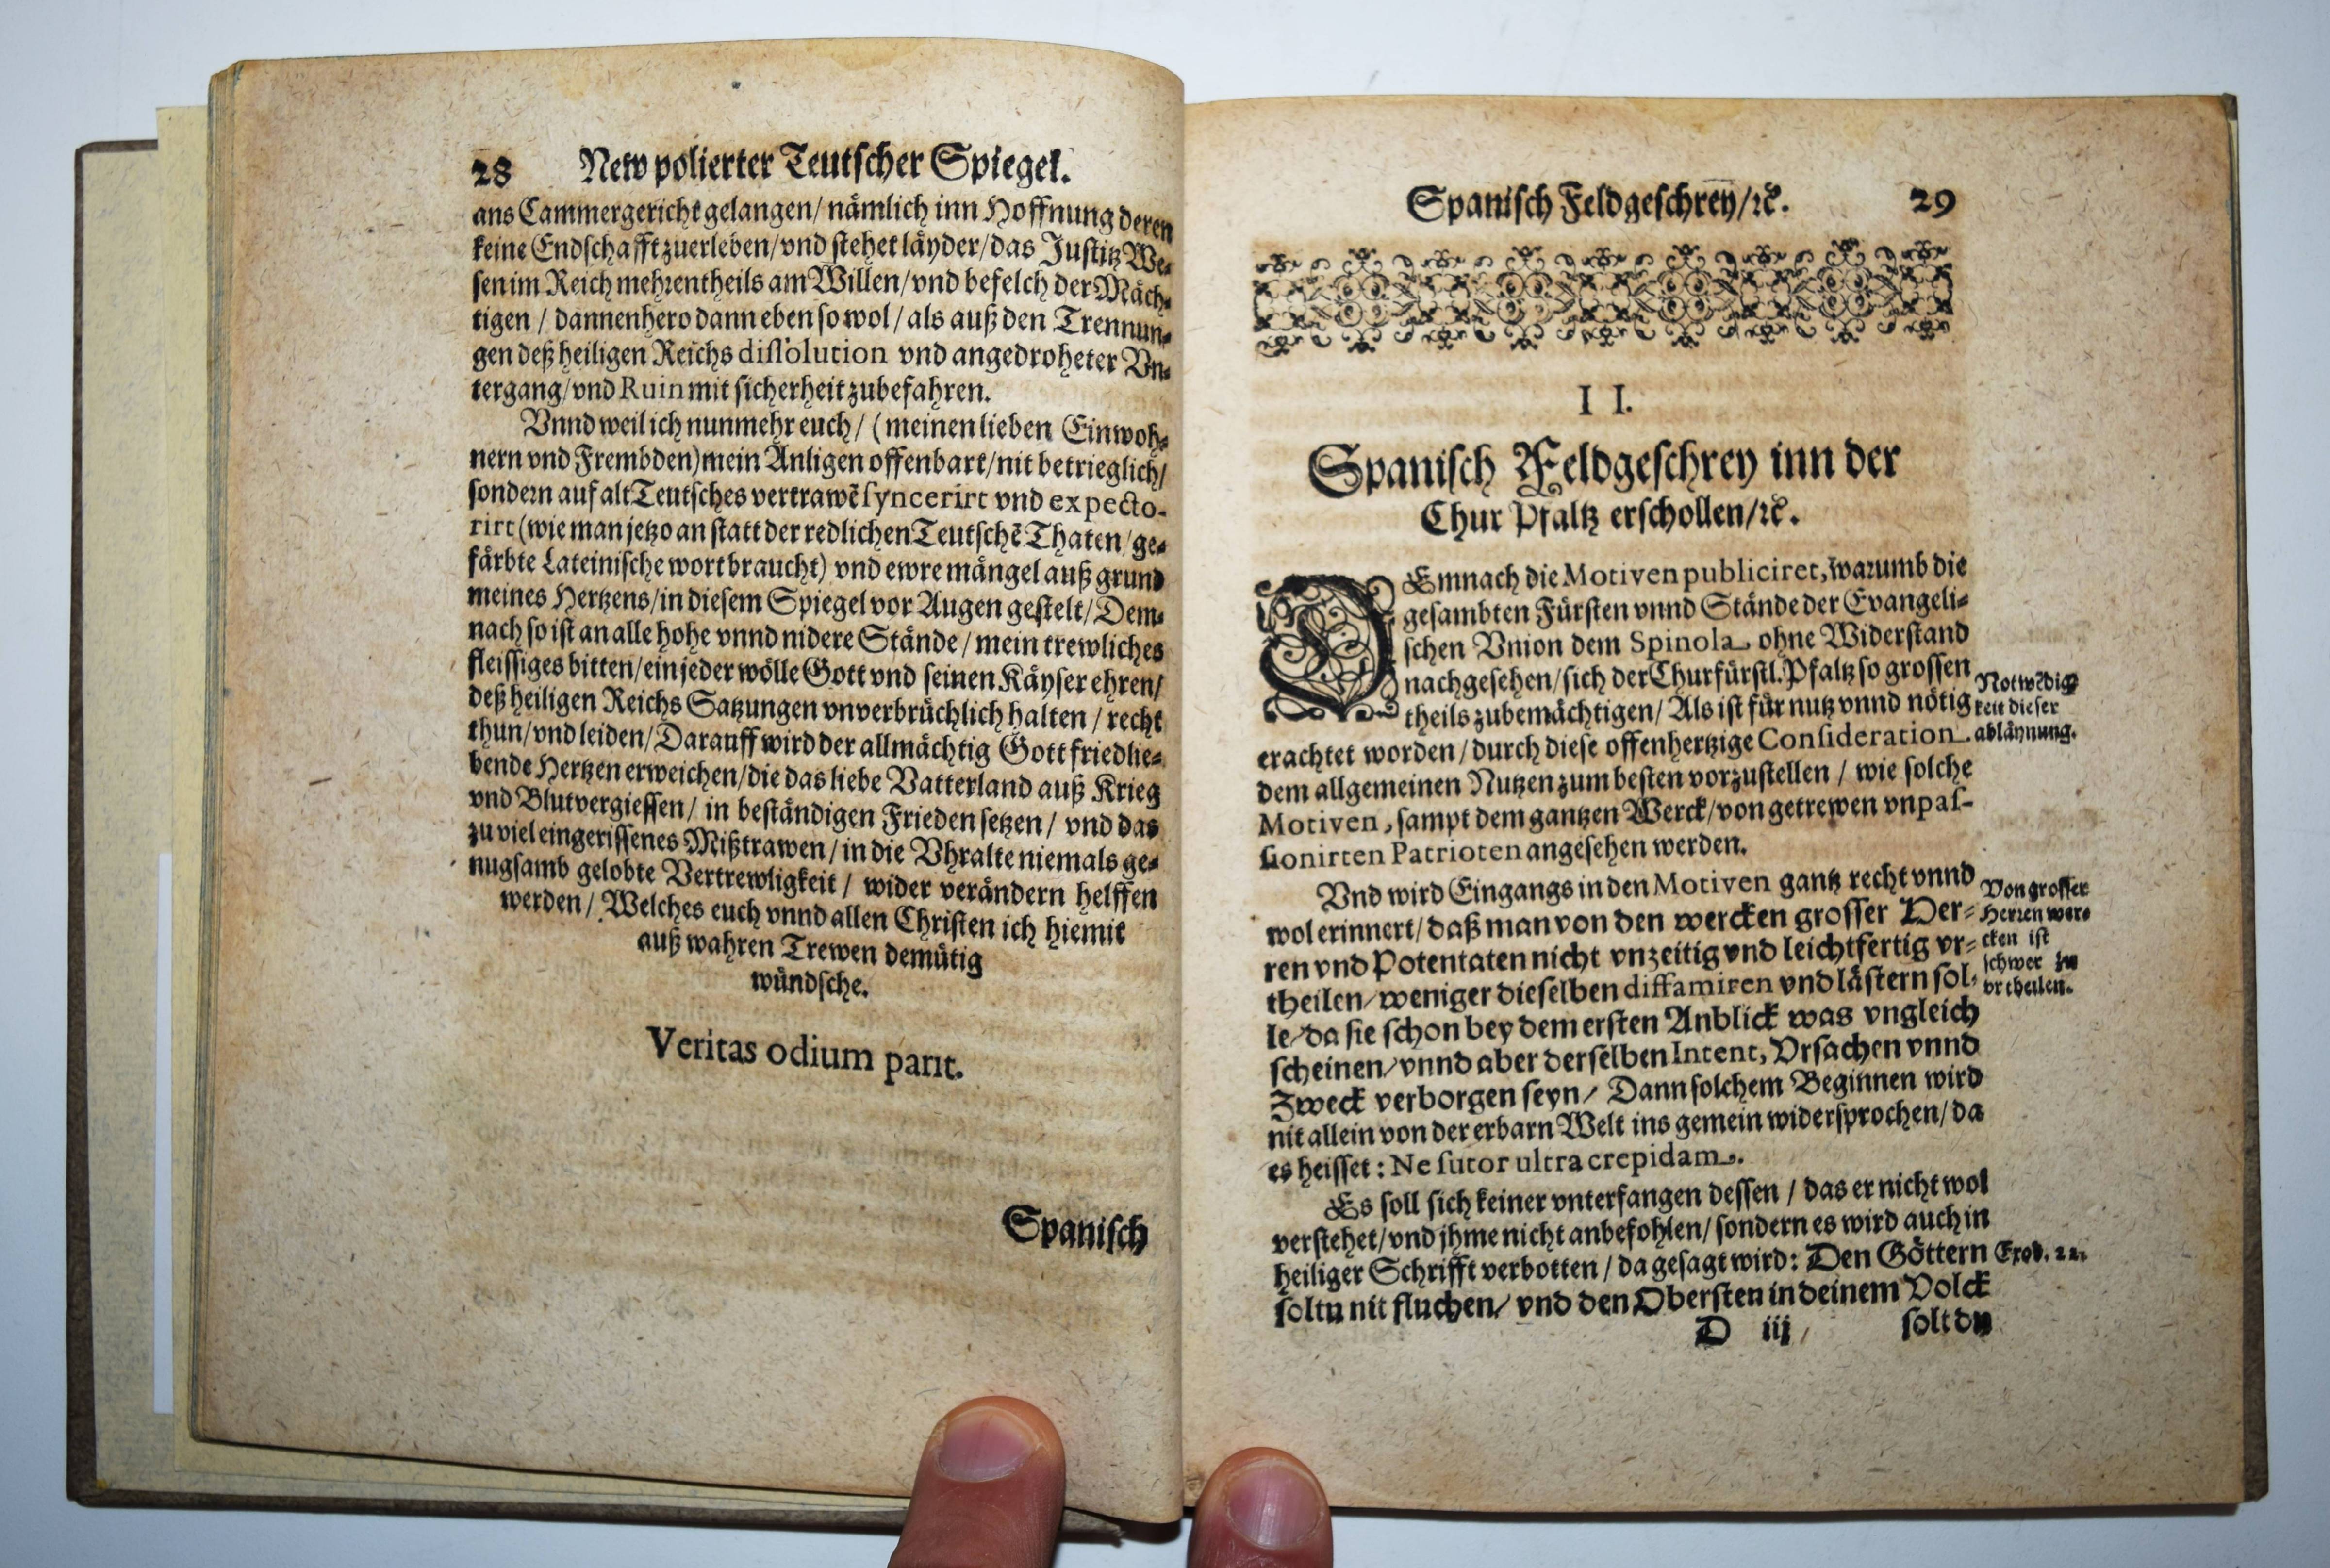 28 New polierter Teutscher Spiegel.
ans Cammergericht gelangen/ nämlich inn Hoffnung deren
keine Endschafft zuerleben/vnd stehet läyder/das Justitz We-
sen im Reich mehrentheils am Willen/vnd befelch der Mäch-
tigen / dannenhero dann eben so wol/als auß den Trennun-
gen deß heiligen Reichs dissolution vnd angedroheter Vn-
tergang/vnd Ruin mit sicherheit zubefahren.
Vnnd weil ich nunmehr euch/ (meinen lieben Einwoh-
nern vnd Frembden) mein Anligen offenbart/nit betrieglich/
sondern auf alt Teutsches vertrawẽ syncerirt vnd expecto-
rirt (wie man jetzo an statt der redlichen Teutschẽ Thaten/ge-
färbte Lateinische wort braucht) vnd ewre mängel auß grund
meines Hertzens/in diesem Spiegel vor Augen gestelt/Dem-
nach so ist an alle hohe vnnd nidere Stände/ mein trewliches
fleissiges bitten/ein jeder wölle Gott vnd seinen Käyser ehren/
deß heiligen Reichs Satzungen vnverbrüchlich halten / recht
thun/vnd leiden/Darauff wird der allmächtig Gott friedlie-
bende Hertzen erweichen/die das liebe Vatterland auß Krieg
vnd Blutvergiessen/ in beständigen Frieden setzen/ vnd das
zu viel eingerissenes Mißtrawen/in die Vhralte niemals ge-
nugsamb gelobte Vertrewligkeit/ wider verändern helffen
werden/ Welches euch vnnd allen Christen ich hiemit
auß wahren Trewen demütig
wündsche.
Veritas odium parit.
Spanisch
Spanisch Feldgeschrey/ꝛc. 29
I I.
Spanisch Feldgeschrey inn der
Chur Pfaltz erschollen/ꝛc.
DEmnach die Motiven publiciret, warumb die
gesambten Fürsten vnnd Stände der Evangeli-
schen Vnion dem Spinola ohne Widerstand
nachgesehen/sich der Churfürstl. Pfaltz so grossen
theils zubemächtigen/ Als ist für nutz vnnd nötig
erachtet worden/durch diese offenhertzige Consideration
dem allgemeinen Nutzen zum besten vorzustellen / wie solche
Motiven, sampt dem gantzen Werck/von getrewen vnpas-
sionirten Patrioten angesehen werden.
Notwẽdig-
keit dieser
abläynung.
Vnd wird Eingangs in den Motiven gantz recht vnnd
wol erinnert/daß man von den wercken grosser Her-
ren vnd Potentaten nicht vnzeitig vnd leichtfertig vr-
theilen/weniger dieselben diffamiren vnd lästern sol-
le/da sie schon bey dem ersten Anblick was vngleich
scheinen/vnnd aber derselben Intent, Vrsachen vnnd
Zweck verborgen seyn/ Dann solchem Beginnen wird
nit allein von der erbarn Welt ins gemein widersprochen/da
es heisset: Ne sutor ultra crepidam.
Von grosser
Herren wer-
cken ist
schwer zu
vrtheilen.
Es soll sich keiner vnterfangen dessen / das er nicht wol
verstehet/vnd jhme nicht anbefohlen/sondern es wird auch in
heiliger Schrifft verbotten / da gesagt wird: Den Göttern
soltu nit fluchen/ vnd den Obersten in deinem Volck
Exod. 22.
D iij solt du